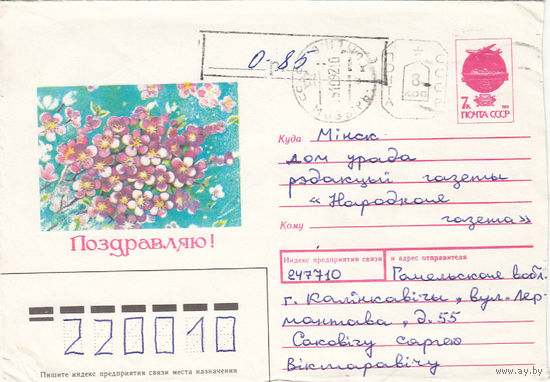 0-85
СССР
7к
ПОЧТА СССР
Куда Мінск
дом урада
рэдакцыі газеты
«Народная
Кому газета»
Поздравляю!
Индекс предприятия связи и адрес отправителя
247710 Гомельская вобл.
г. Калінкавічы, вул. Лер-
мантава, д. 55
Саковічу Саргею
Віктаравічу
220010
Пишите индекс предприятия связи места назначения
www.ay.by